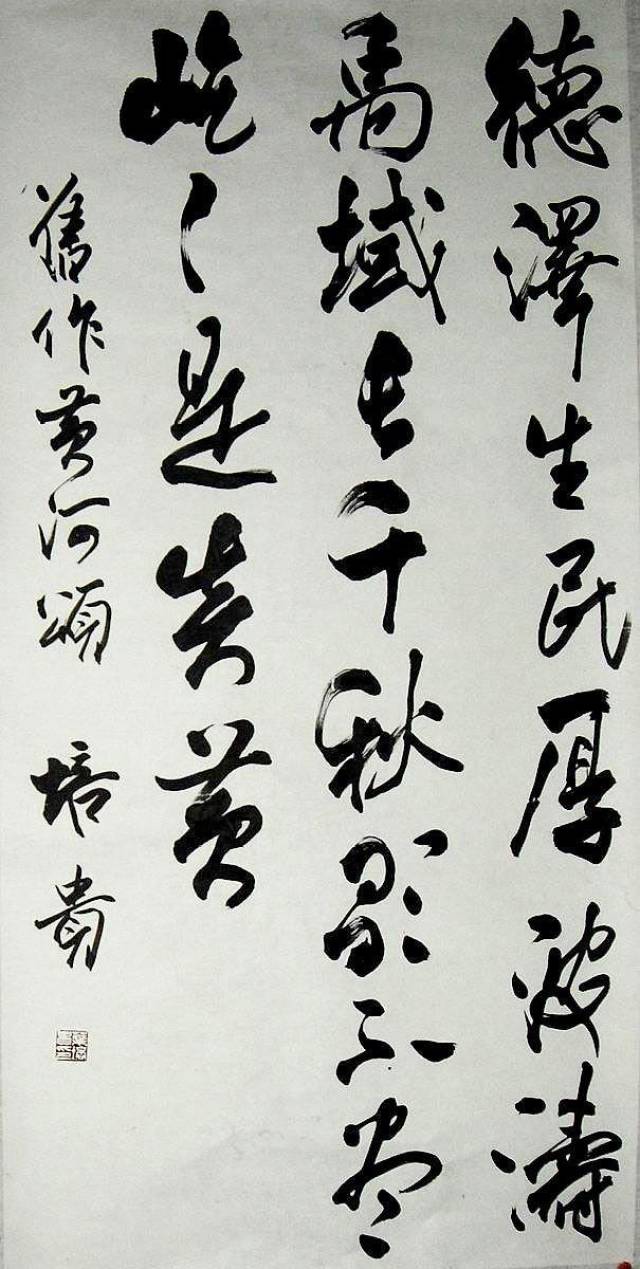 德澤生民厚波濤
禹域長千秋歌不盡
屹々是炎黄
舊作黄河頌 培貴